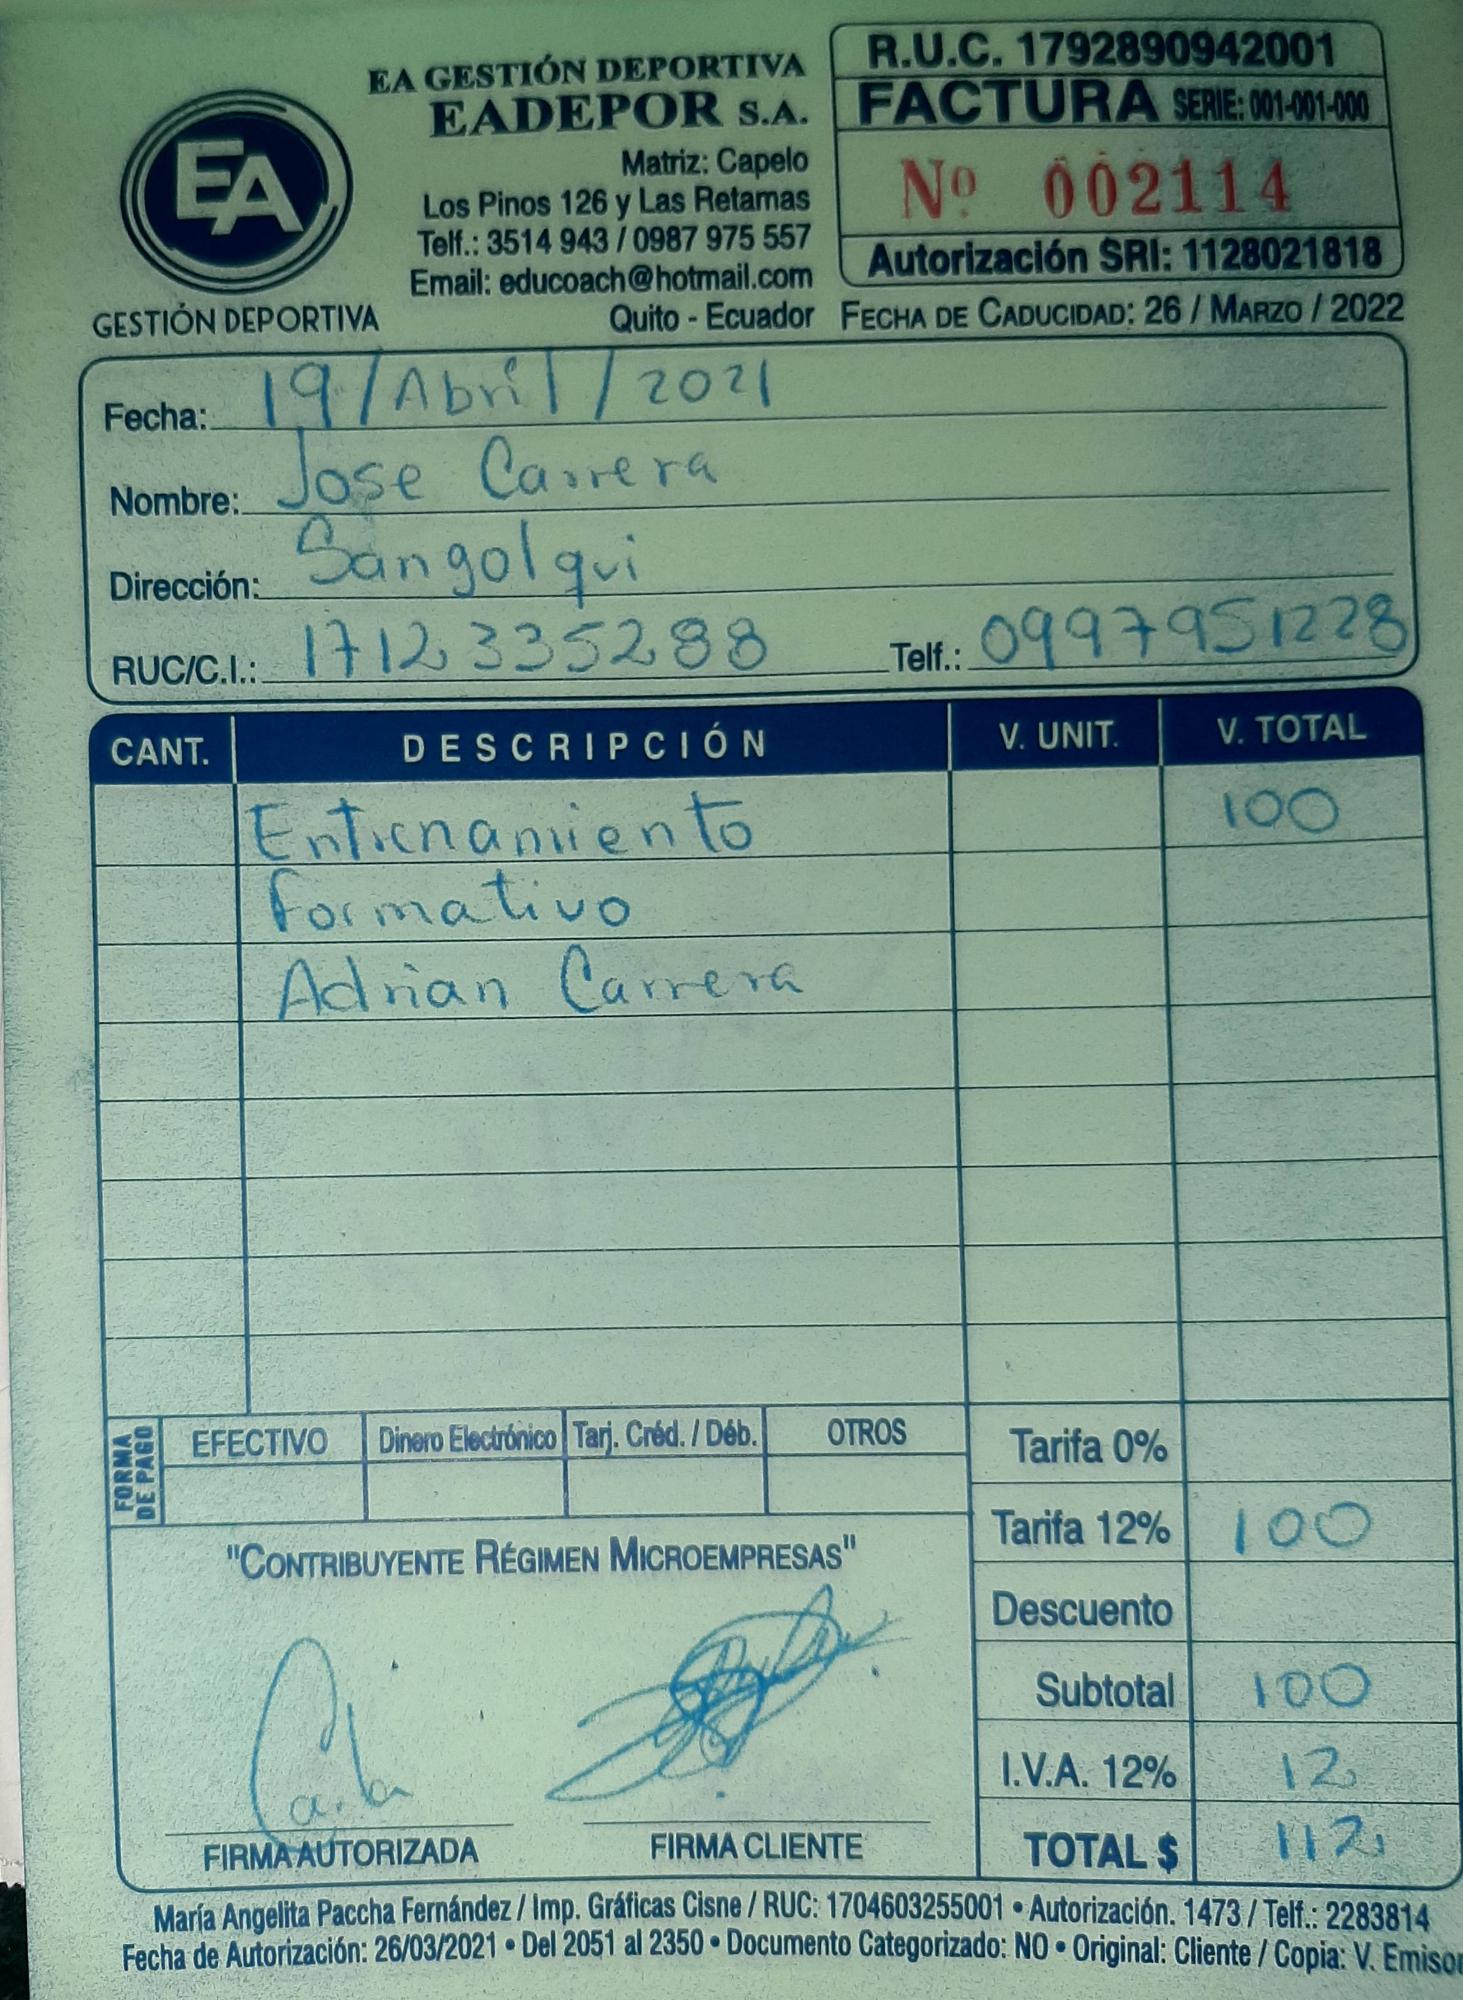 EA GESTIÓN DEPORTIVA
EADEPOR S.A.
Matriz: Capelo
Los Pinos 126 y Las Retamas
Telf.: 3514 943 / 0987 975 557
Email: educoach@hotmail.com
Quito - Ecuador
EA
GESTIÓN DEPORTIVA
R.U.C. 1792890942001
FACTURA SERIE: 001-001-000
Nº 002114
Autorización SRI: 1128021818
FECHA DE CADUCIDAD: 26 / MARZO / 2022
Fecha: 19/Abril/2021
Nombre: Jose Carrera
Dirección: Sangolqui
RUC/C.I.: 1712335288 Telf.: 0997951228
CANT. DESCRIPCIÓN V. UNIT. V. TOTAL
Entrenamiento 100
formativo
Adrian Carrera
FORMA DE PAGO EFECTIVO Dinero Electrónico Tarj. Créd. / Déb. OTROS
Tarifa 0%
Tarifa 12% 100
"CONTRIBUYENTE RÉGIMEN MICROEMPRESAS"
Descuento
Subtotal 100
I.V.A. 12% 12
TOTAL $ 112
FIRMA AUTORIZADA FIRMA CLIENTE
María Angelita Paccha Fernández / Imp. Gráficas Cisne / RUC: 1704603255001 • Autorización. 1473 / Telf.: 2283814
Fecha de Autorización: 26/03/2021 • Del 2051 al 2350 • Documento Categorizado: NO • Original: Cliente / Copia: V. Emisor